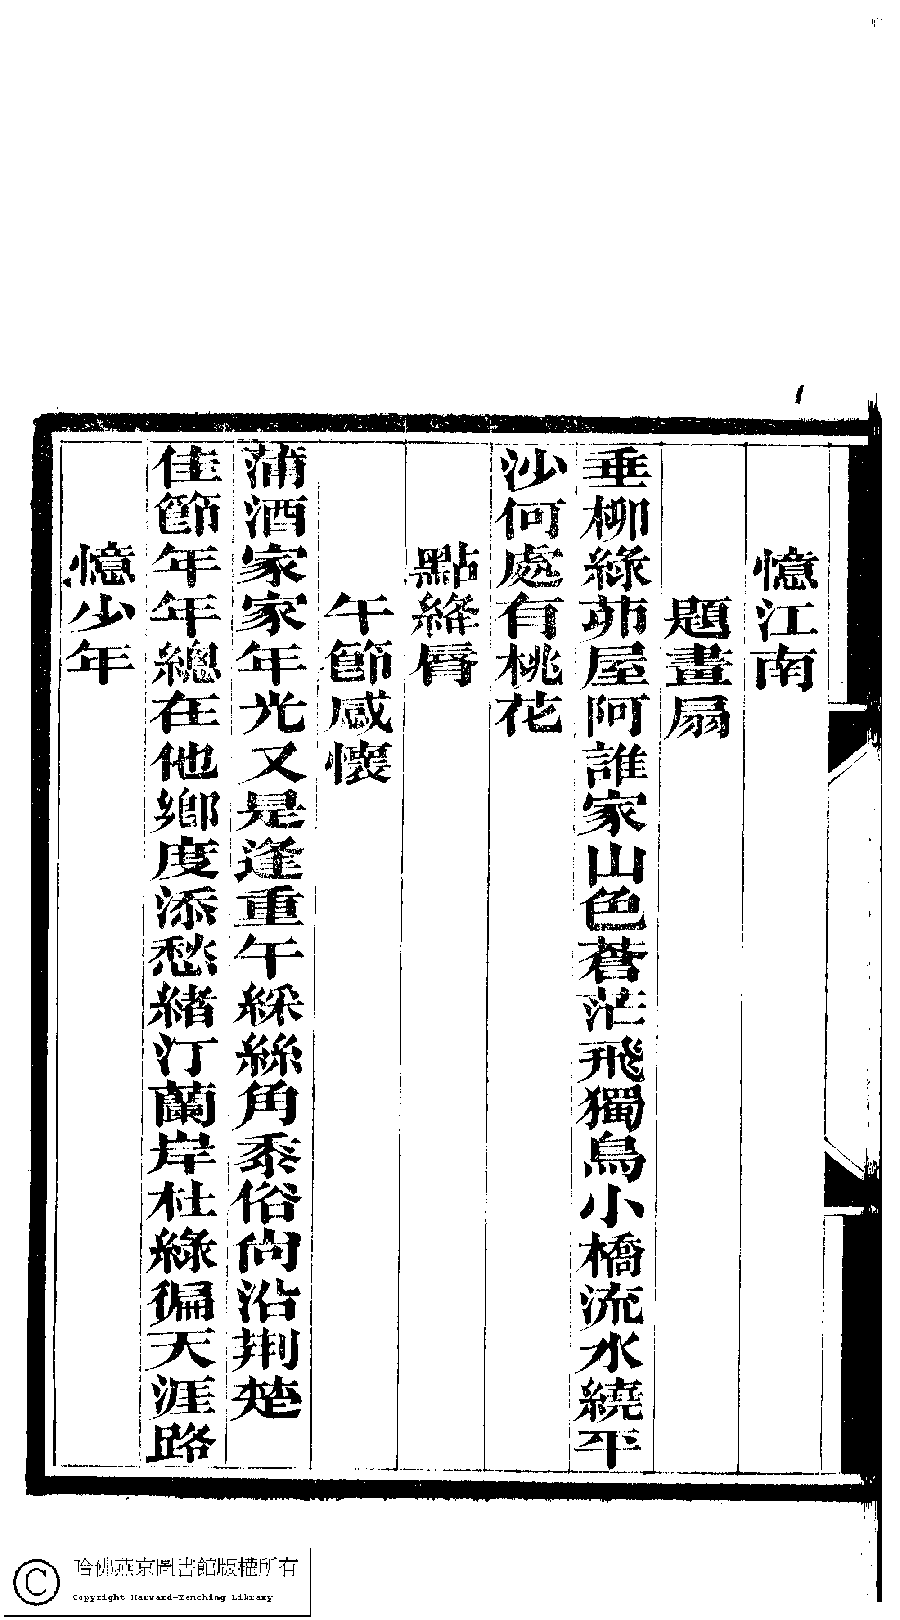 憶江南
題畫扇
垂柳綠茆屋阿誰家山色蒼茫飛獨鳥小橋流水繞平
沙何處有桃花
點絳脣
午節感懷
蒲酒家家年光又是逢重午綵絲角黍俗尚沿荆楚
佳節年年總在他鄉度添愁緒汀蘭岸杜綠徧天涯路
憶少年
哈佛燕京圖書館版權所有
Copyright Harvard-Yenching Library